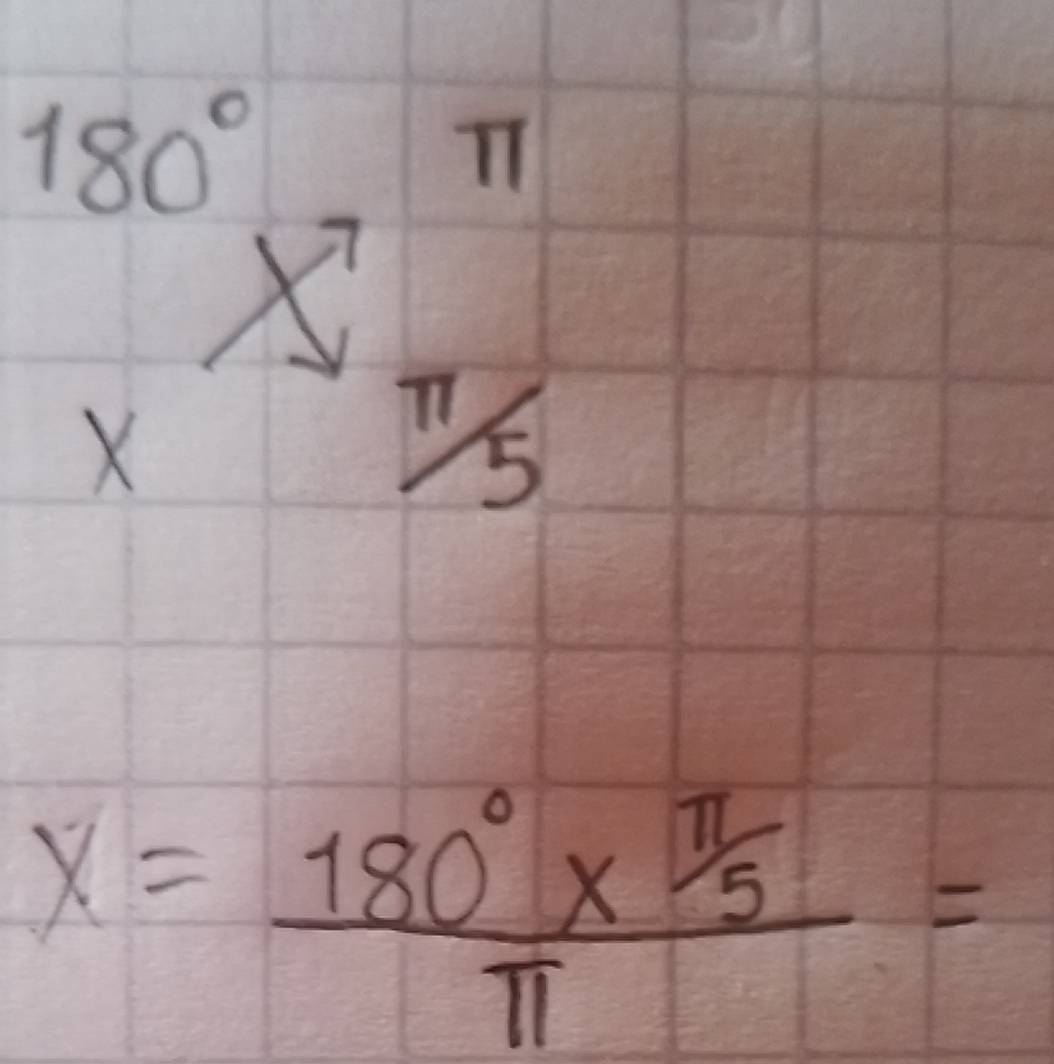 180° π
x π/5
x = 180° x π/5 =
π